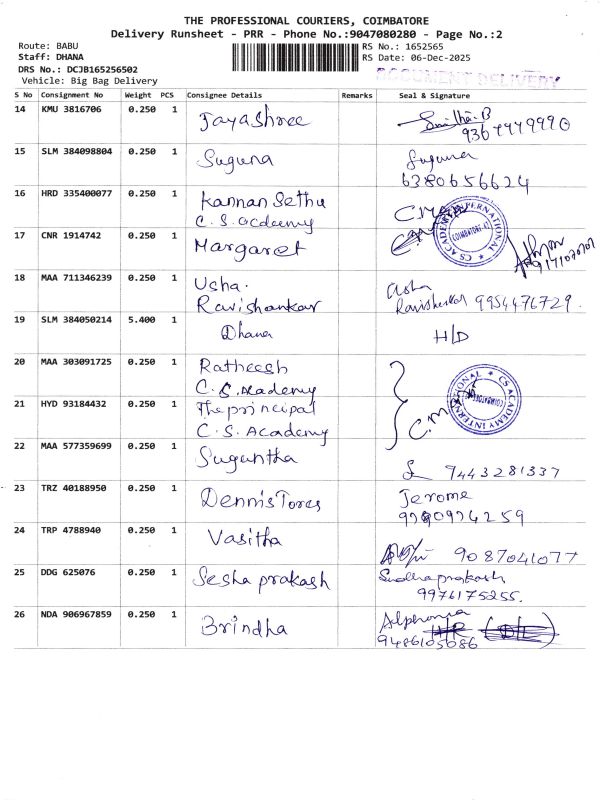 THE PROFESSIONAL COURIERS, COIMBATORE
Delivery Runsheet - PRR - Phone No.:9047080280 - Page No.:2
Route: BABU
Staff: DHANA
DRS No.: DCJB165256502
Vehicle: Big Bag Delivery
RS No.: 1652565
RS Date: 06-Dec-2025
DOCUMENT DELIVERY
S No Consignment No Weight PCS Consignee Details Remarks Seal & Signature
14 KMU 3816706 0.250 1 Jayashree
15 SLM 384098804 0.250 1 Suguna Suguna
6380656624
16 HRD 335400077 0.250 1 Kannan Sethu
C.S. acdeemy
CS ACADEMY INTERNATIONAL COIMBATORE-42
17 CNR 1914742 0.250 1 Margaret
18 MAA 711346239 0.250 1 Usha.
Ravishankar
9954476729.
19 SLM 384050214 5.400 1 Dhana H/D
20 MAA 303091725 0.250 1 Ratheesh
C.S. Academy
CS ACADEMY INTERNATIONAL
21 HYD 93184432 0.250 1 The principal
C.S. Academy
22 MAA 577359699 0.250 1 Sugantha
9443281337
23 TRZ 40188950 0.250 1 Dennis Tores Jerome
24 TRP 4788940 0.250 1 Vasitha 9087041077
25 DDG 625076 0.250 1 Sesha prakash Sudhaprakash
9976175255.
26 NDA 906967859 0.250 1 Brindha Alphonsa
9486105086